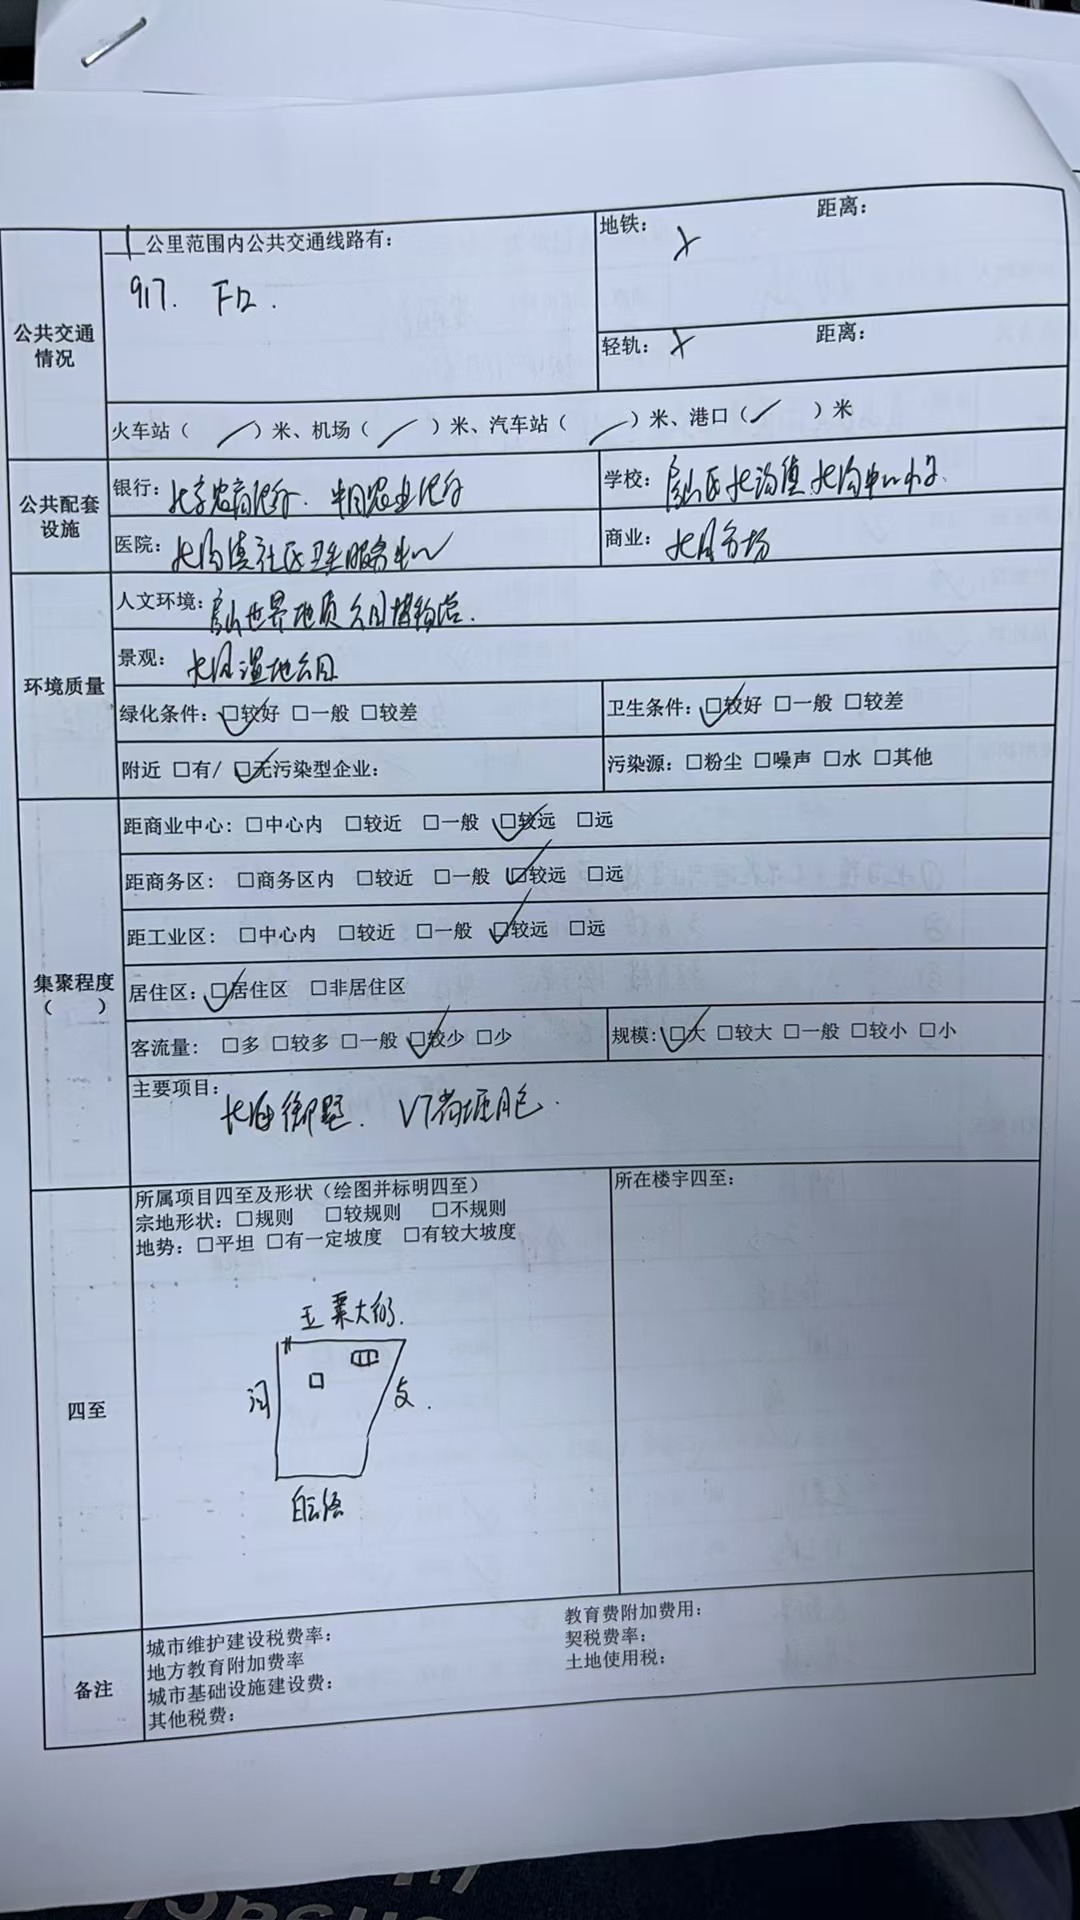 1 公里范围内公共交通线路有：
917. F12.
地铁： × 距离：
轻轨： × 距离：
公共交通情况
火车站（ / ）米、机场（ / ）米、汽车站（ / ）米、港口（ / ）米
公共配套设施
银行：北京农商银行. 中国农业银行
学校：房山区长沟镇长沟中心小学.
医院：长沟镇社区卫生服务中心
商业：
环境质量
人文环境：房山世界地质公园博物馆.
景观：长沟湿地公园
绿化条件：☑较好 □一般 □较差
卫生条件：☑较好 □一般 □较差
附近 □有/ ☑无污染型企业：
污染源：□粉尘 □噪声 □水 □其他
集聚程度（ ）
距商业中心：□中心内 □较近 □一般 ☑较远 □远
距商务区：□商务区内 □较近 □一般 ☑较远 □远
距工业区：□中心内 □较近 □一般 ☑较远 □远
居住区：☑居住区 □非居住区
客流量：□多 □较多 □一般 ☑较少 □少
规模：☑大 □较大 □一般 □较小 □小
主要项目：
四至
所属项目四至及形状（绘图并标明四至）
宗地形状：□规则 □较规则 □不规则
地势：□平坦 □有一定坡度 □有较大坡度
所在楼宇四至：
河
备注
城市维护建设税费率：
教育费附加费用：
地方教育附加费率
契税费率：
城市基础设施建设费：
土地使用税：
其他税费：